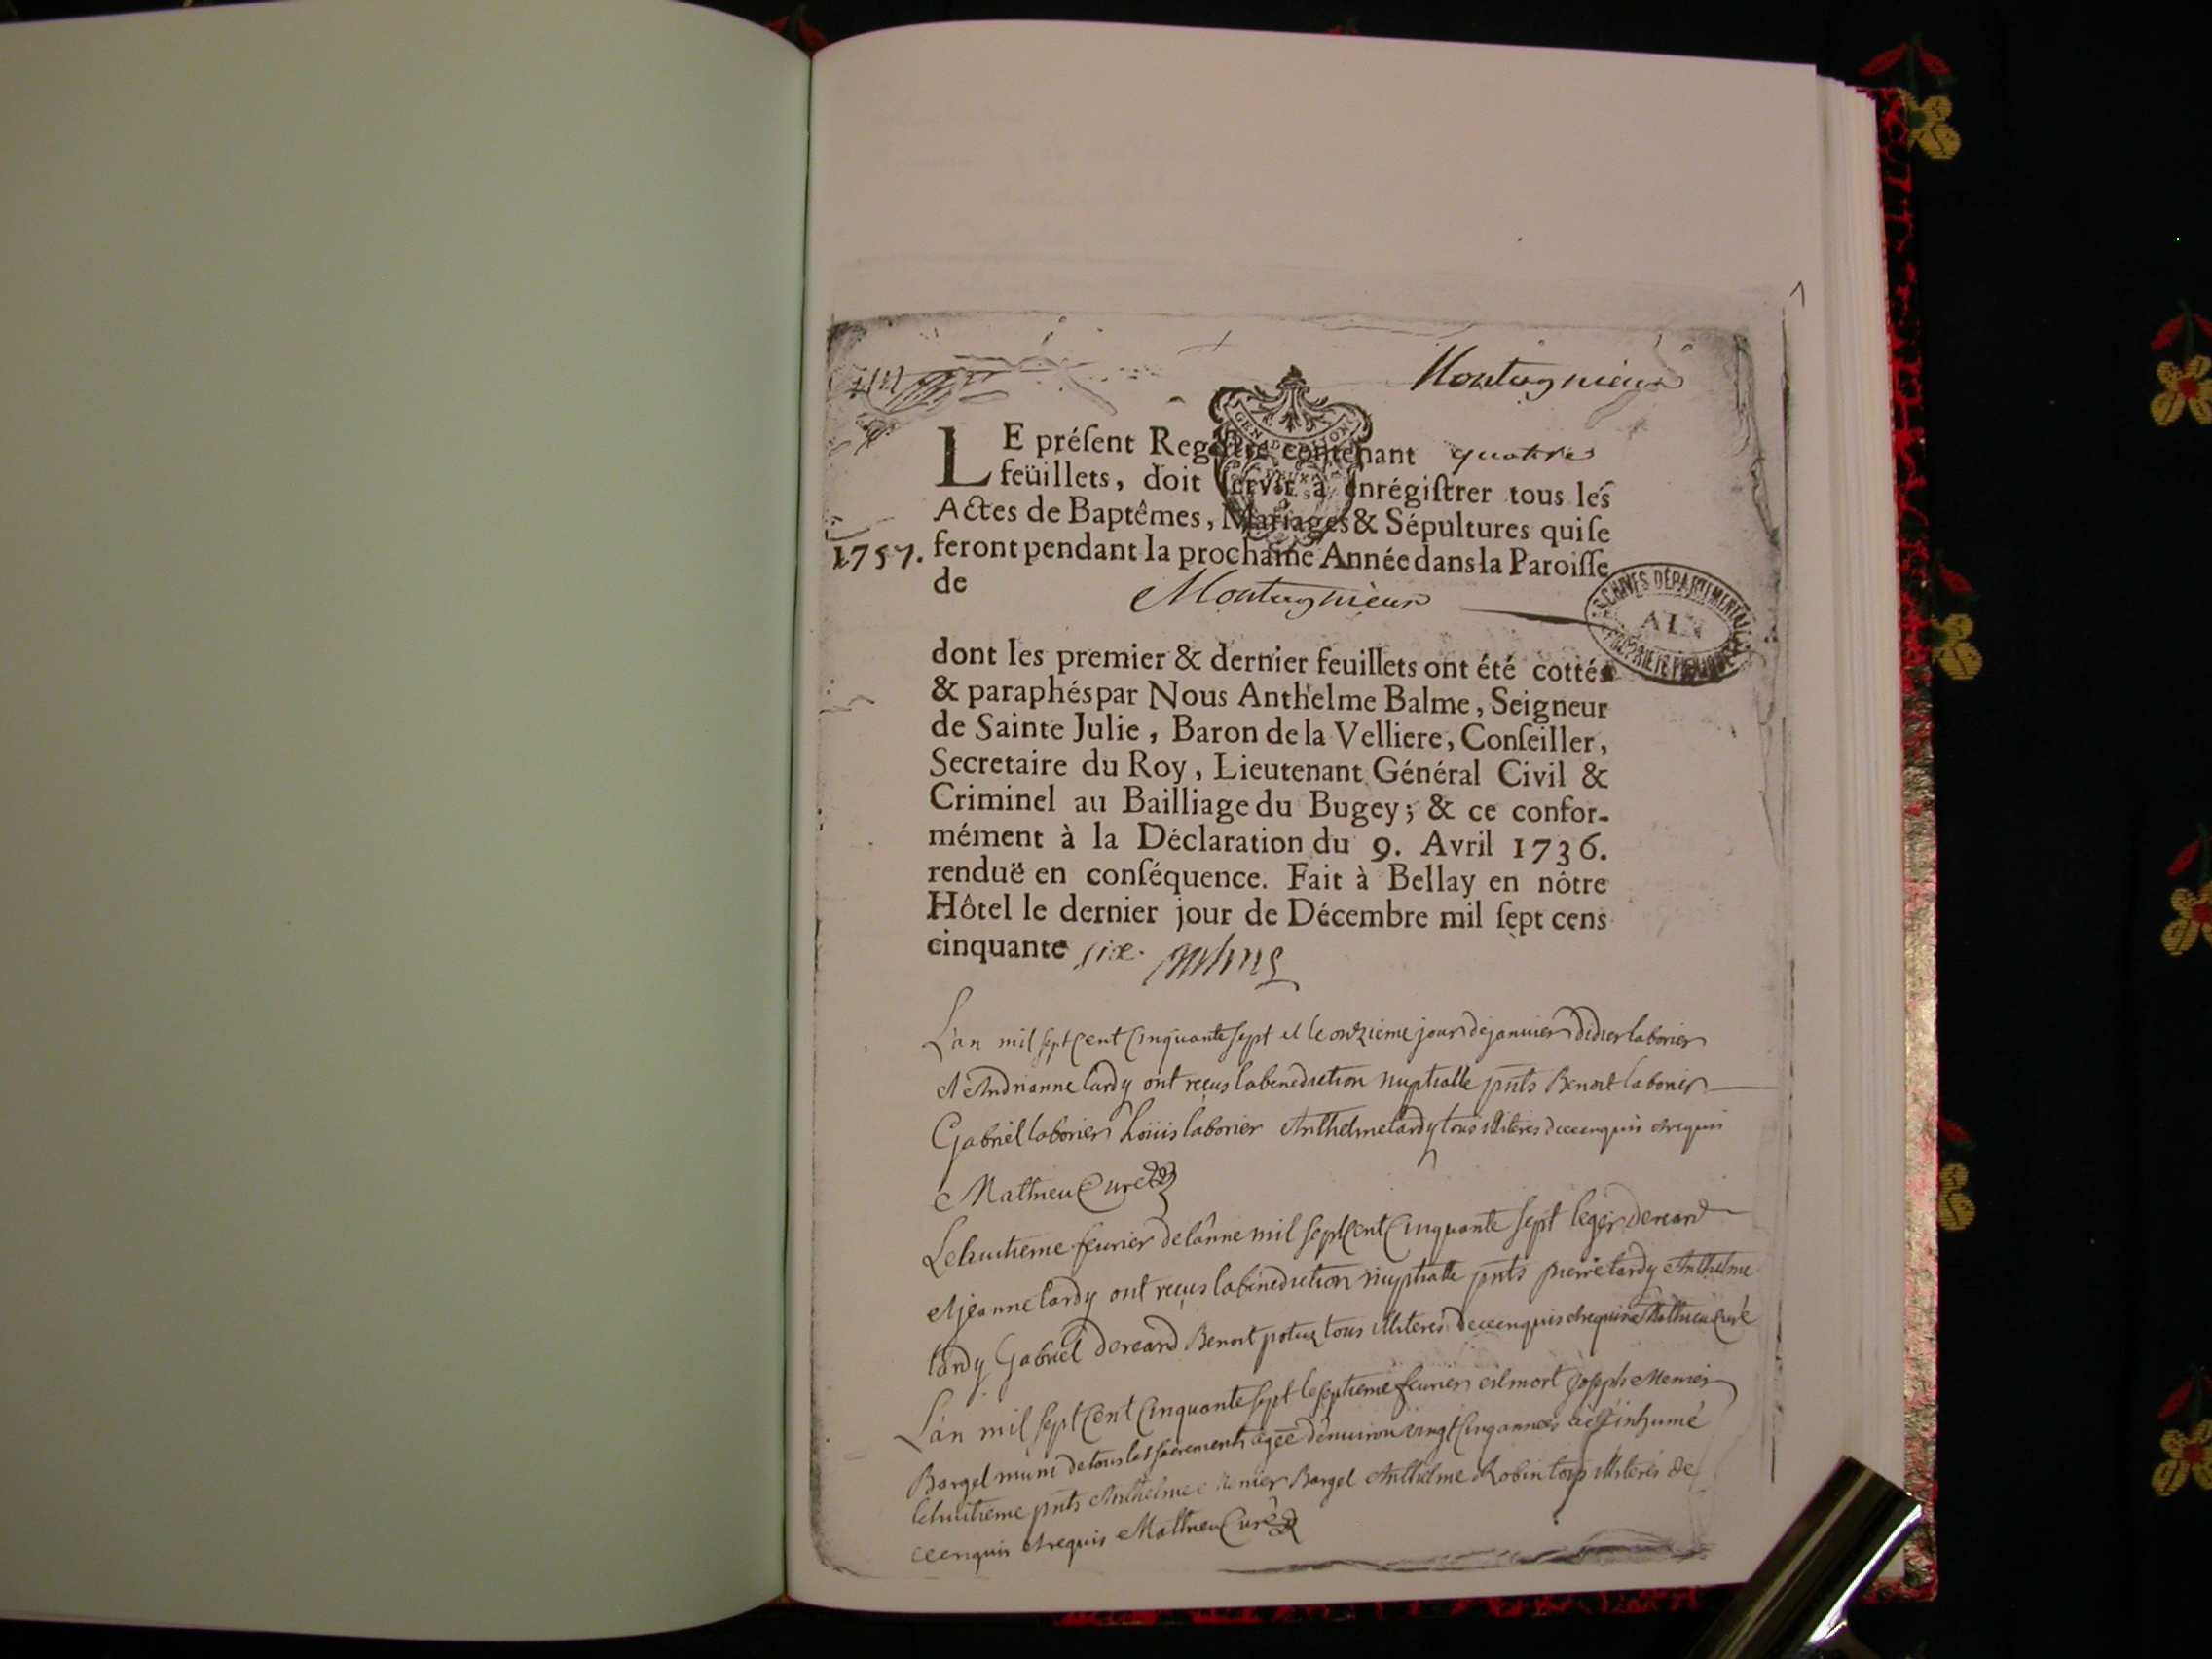 1
Montagnieux
GEN. D. DIION
LE préſent Regiſtre contenant quatre
feüillets, doit ſervir à enrégiſtrer tous les
Actes de Baptêmes, Mariages & Sépultures qui ſe
1757. feront pendant la prochaine Année dans la Paroiſſe
de Montagnieux
ARCHIVES DÉPARTEMENTALES
AIN
PROPRIÉTÉ PUBLIQUE
dont les premier & dernier feuillets ont été cottés
& paraphés par Nous Anthelme Balme, Seigneur
de Sainte Julie, Baron de la Velliere, Conſeiller,
Secretaire du Roy, Lieutenant Général Civil &
Criminel au Bailliage du Bugey; & ce confor-
mément à la Déclaration du 9. Avril 1736.
renduë en conſéquence. Fait à Bellay en nôtre
Hôtel le dernier jour de Décembre mil ſept cens
cinquante six.
L'an mil sept cent cinquante sept et le onzieme jour de janvier didier laborier
et Andrianne lardy ont reçus la benediction nuptialle pnts Benoit laborier
Gabriel laborier Loüis laborier Anthelme lardy tous illiteres de ce enquis et requis
Mathieu Curé
Le huitieme fevrier de lânne mil sept cent cinquante sept leger dereard
et jeanne lardy ont reçus la benediction nuptialle pnts pierre lardy Anthelme
lardy Gabriel dereard Benoit potuz tous illiteres de ce enquis et requis Mathieu Curé
L'an mil sept cent cinquante sept le septieme fevrier est mort joseph Memier
Bargel muni de tous les sacrements agee d'environ vingt cinq années a est inhumé
le huitieme pnts Anthelme Bargel Anthelme Robin tous illiteres de
ce enquis et requis Mathieu Curé